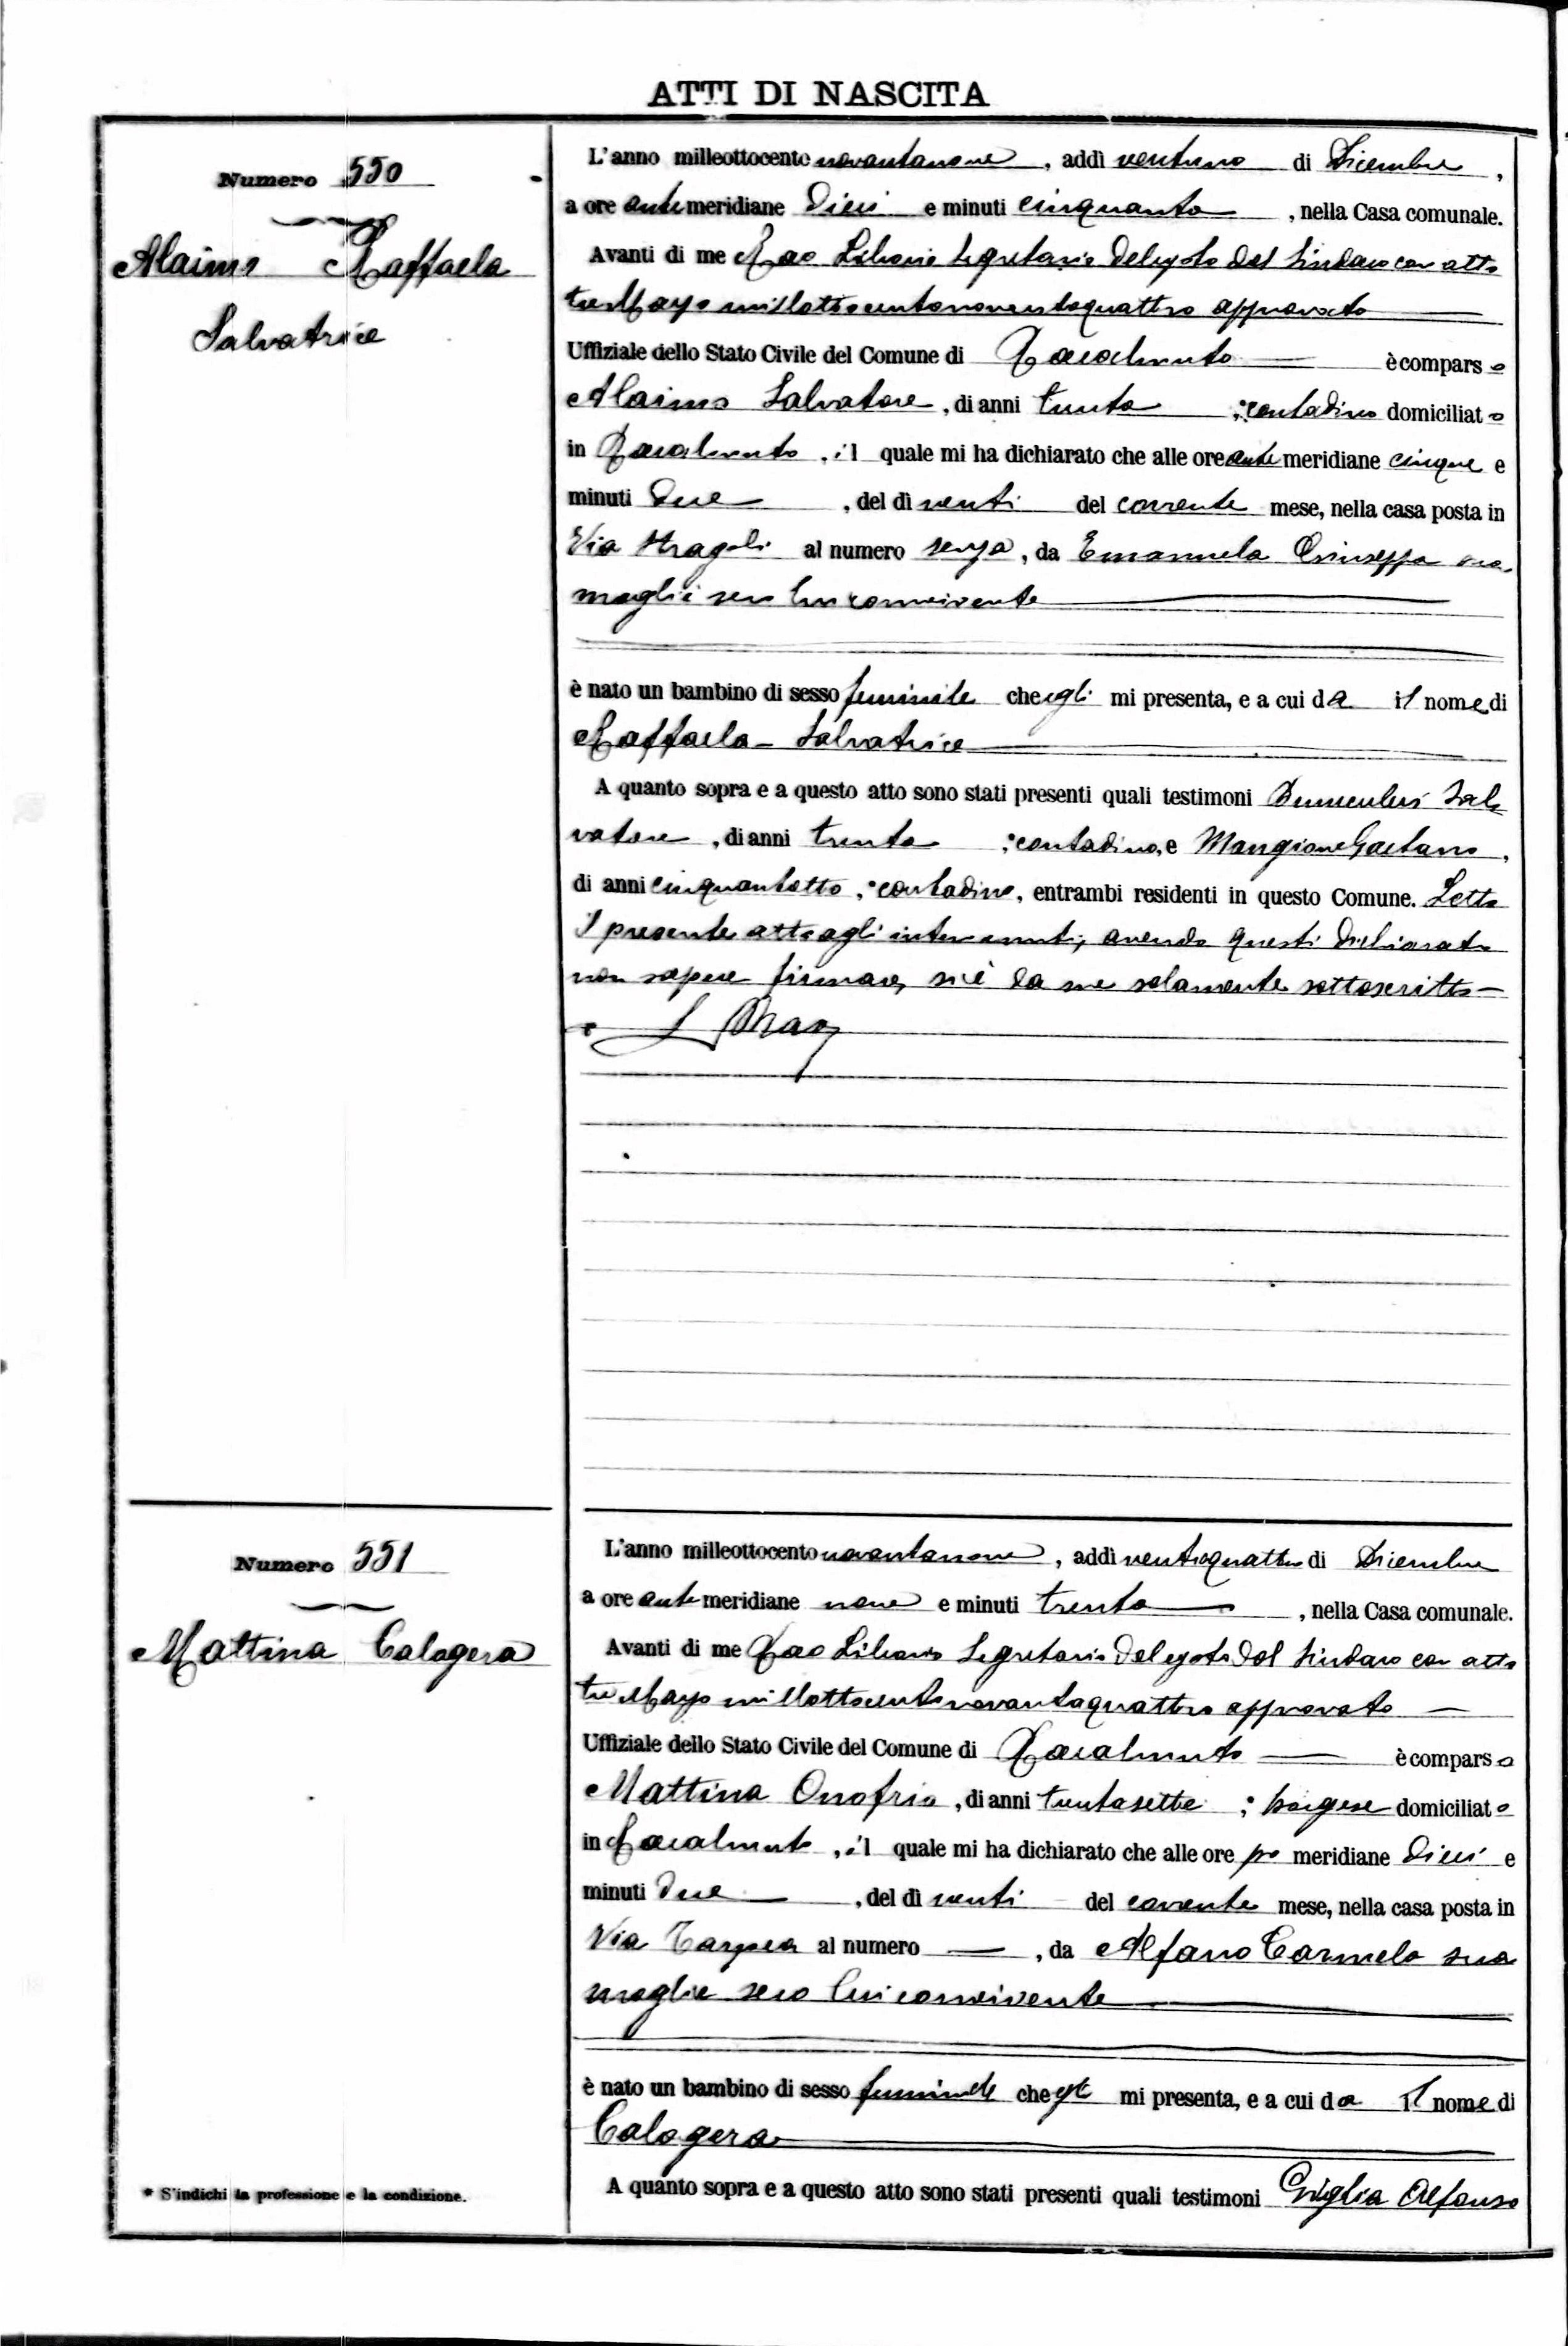 ATTI DI NASCITA
Numero 550
Alaimo Raffaela
Salvatrice
L'anno milleottocento novantanove, addì ventuno di Dicembre,
a ore antemeridiane dieci e minuti cinquanta, nella Casa comunale.
Avanti di me Rao Liborio Segretario Delegato dal Sindaco con atto
tre Mayo millottocentonovantaquattro approvato
Uffiziale dello Stato Civile del Comune di Racalmuto è comparso
Alaimo Salvatore, di anni trenta ;* contadino domiciliato
in Racalmuto, il quale mi ha dichiarato che alle ore antemeridiane cinque e
minuti due, del dì venti del corrente mese, nella casa posta in
Via Stragoli al numero senza, da Emanuela Giuseppa sua
moglie seco lui convivente
è nato un bambino di sesso feminile che egli mi presenta, e a cui da il nome di
Raffaela-Salvatrice
A quanto sopra e a questo atto sono stati presenti quali testimoni Sal
vatore, di anni trenta ;* contadino, e Mangione Gaetano,
di anni cinquantotto, * contadino, entrambi residenti in questo Comune. Letto
il presente atto agli intervenuti, avendo questi dichiarato
non sapere firmare, si è da me solamente sottoscritto
L Rao
Numero 551
Mattina Calogera
L'anno milleottocento novantanove, addì ventiquattro di Dicembre
a ore antemeridiane nove e minuti trenta, nella Casa comunale.
Avanti di me Rao Liborio Segretario Delegato dal Sindaco con atto
tre Mayo millottocentonovantaquattro approvato
Uffiziale dello Stato Civile del Comune di Racalmuto è comparso
Mattina Onofrio, di anni trentasette ;* borgese domiciliato
in Racalmuto, il quale mi ha dichiarato che alle ore pomeridiane dieci e
minuti due, del dì venti del corrente mese, nella casa posta in
Via Tarpea al numero —, da Alfano Carmela sua
moglie seco lui convivente
è nato un bambino di sesso feminile che egli mi presenta, e a cui da il nome di
Calogera
A quanto sopra e a questo atto sono stati presenti quali testimoni Giglia Alfonso
* S'indichi la professione e la condizione.